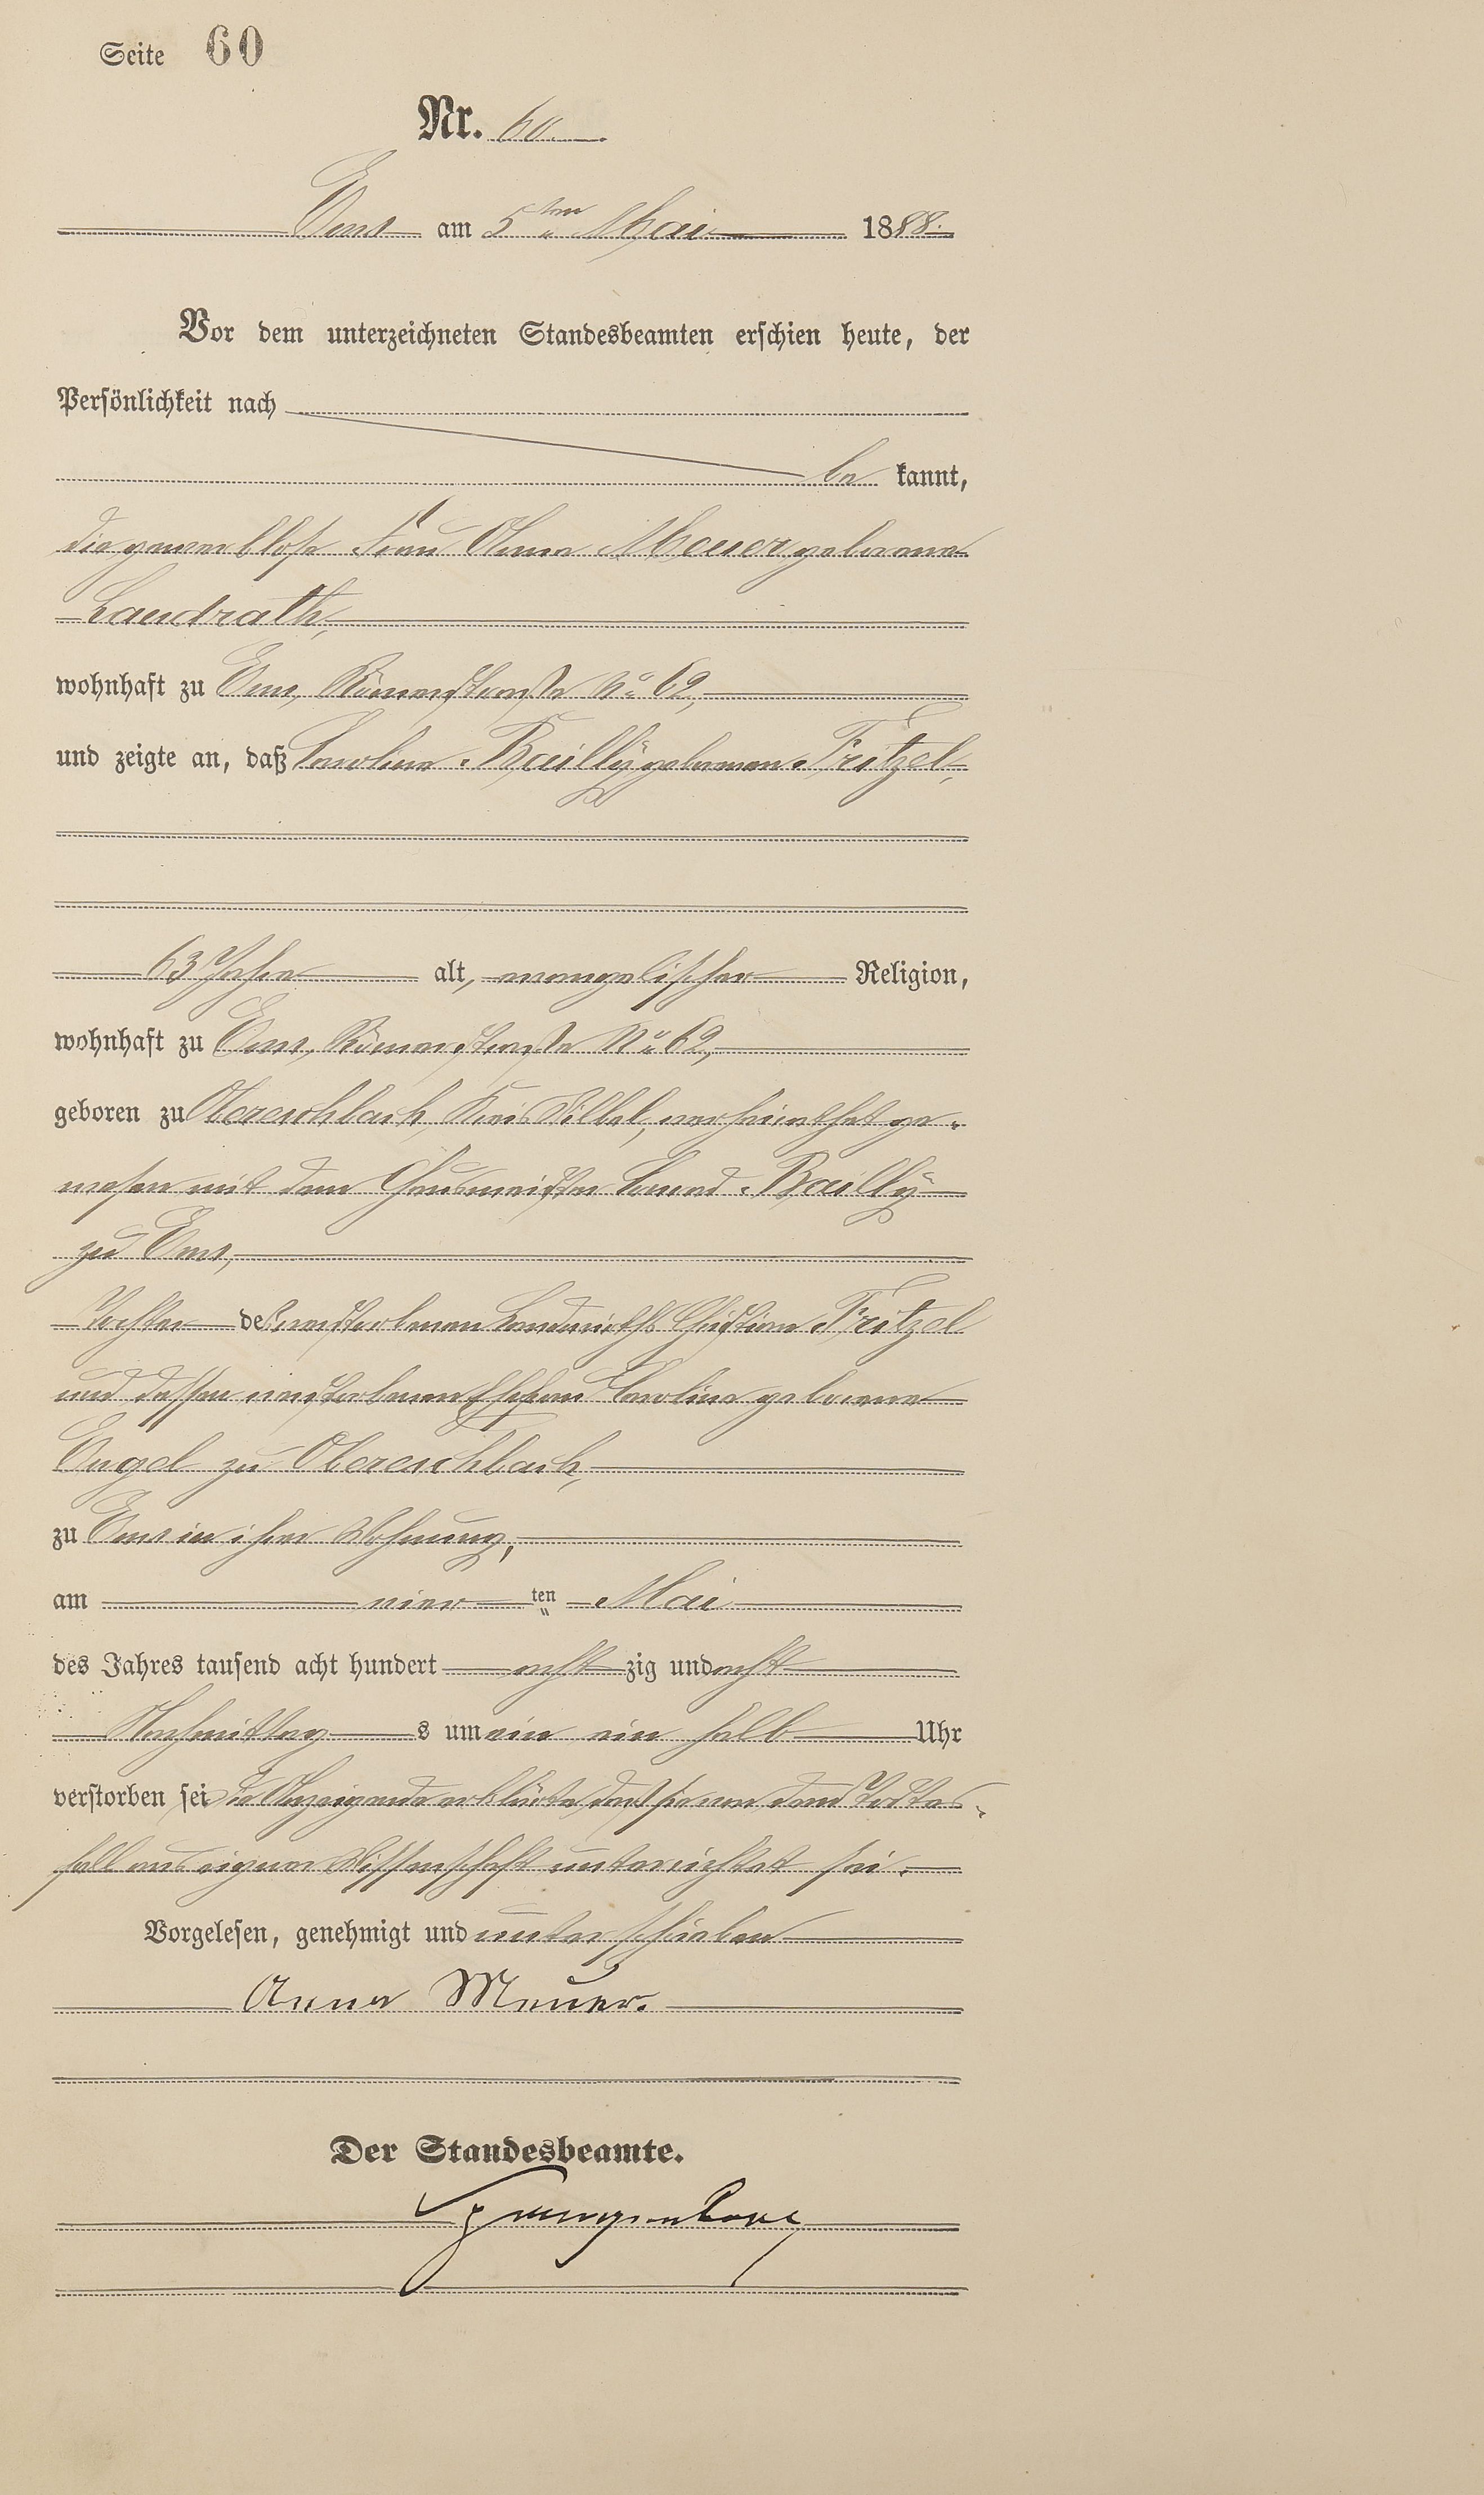 Seite 60
Nr. 60.
Ems am 5ten Mai 1888.
Vor dem unterzeichneten Standesbeamten erschien heute, der
Persönlichkeit nach
be kannt,
die gewerblose Frau Anna Meuer geborene
Landrath,
wohnhaft zu Ems, Römerstraße No 62,
und zeigte an, daß Caroline Bailly geborenen Fritzel,
63 Jahre alt, evangelischer Religion,
wohnhaft zu Ems, Römerstraße No 62,
geboren zu Obereschbach, Kreis Vilbel, verheirathet ge-
wesen mit dem Hausmeister Bailly
zu Ems,
Tochter des verstorbenen Landwirths Christian Fritzel
und dessen verstorbenen Ehefrau Caroline geborene
Engel zu Obereschbach,
zu Ems in ihrer Wohnung,
am vier ten Mai
des Jahres tausend acht hundert acht zig und acht
Nachmittag s um ein ein halb Uhr
verstorben sei die Anzeigende erklärte, daß sie von dem Todes-
fall aus eigener Wissenschaft unterrichtet sei.
Vorgelesen, genehmigt und unterschrieben
Anna Meuer.
Der Standesbeamte.